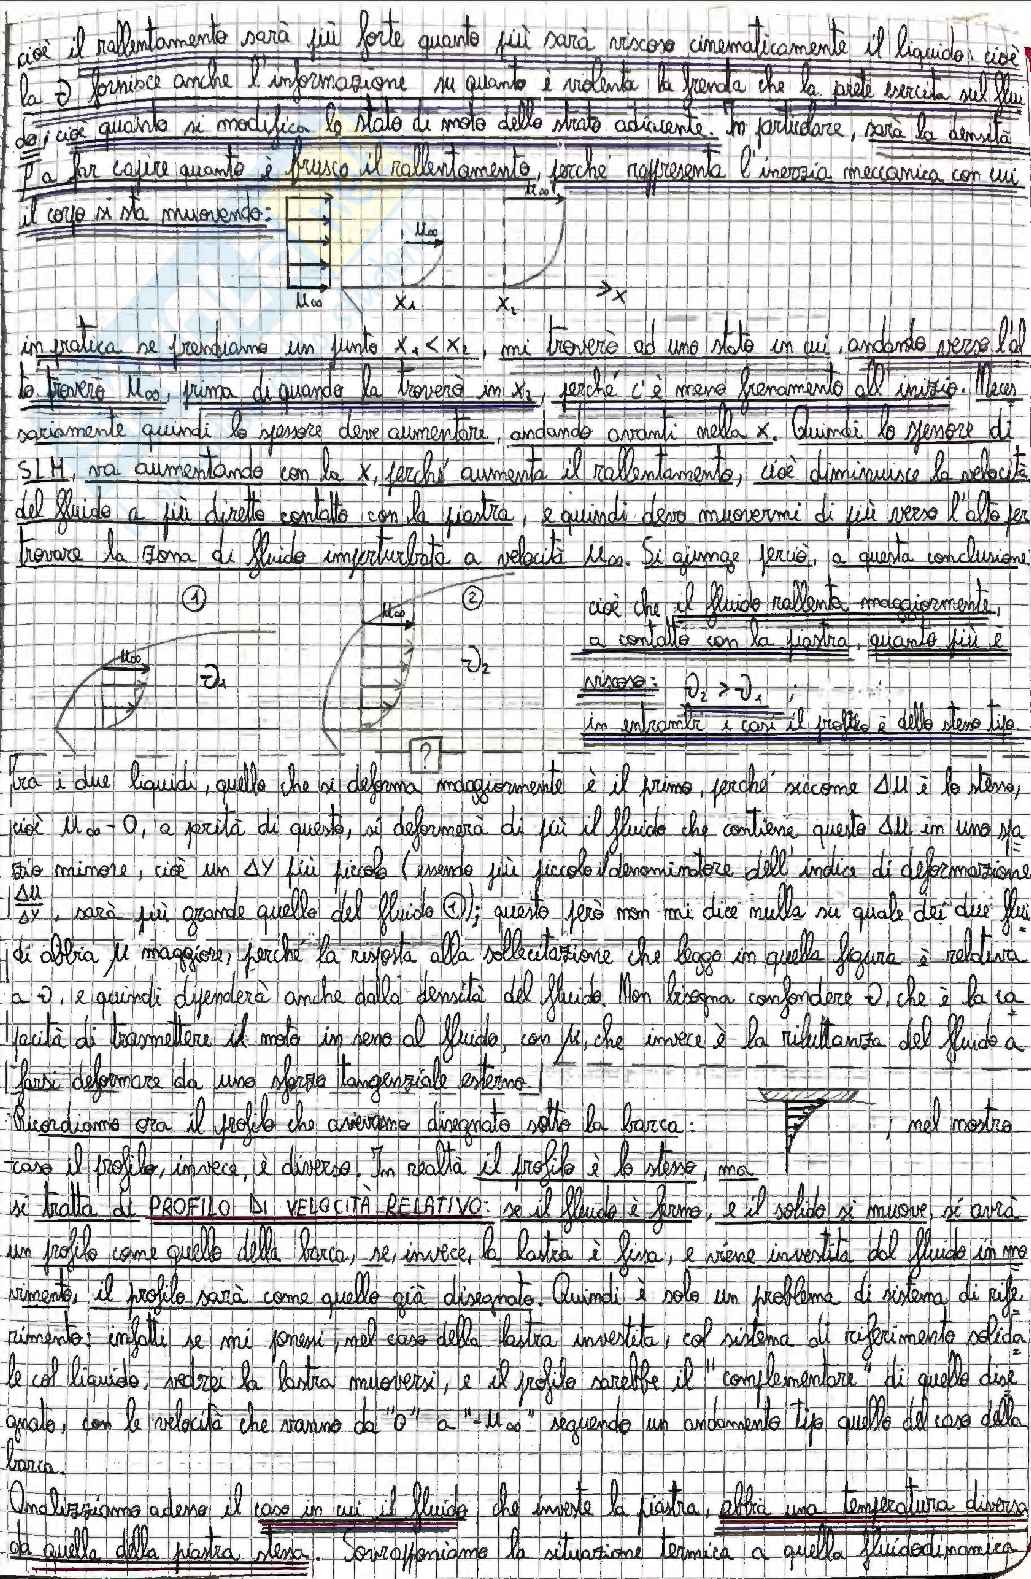 cioè il rallentamento sarà più forte quanto più sarà viscoso cinematicamente il liquido: cioè
la ϑ fornisce anche l'informazione su quanto è violenta la frenata che la parete esercita sul flui
do, cioè quanto si modifica lo stato di moto dello strato adiacente. In particolare, sarà la densità
ρ a far capire quanto è brusco il rallentamento, perché rappresenta l'inerzia meccanica con cui
il corpo si sta muovendo:
u∞
u∞
u∞
x₁
x₂
x
in pratica se prendiamo un punto x₁ < x₂, mi troverò ad uno stato in cui, andando verso l'al
to troverò u∞, prima di quando la troverò in x₂, perché c'è meno frenamento all'inizio. Neces
sariamente quindi lo spessore deve aumentare, andando avanti nella x. Quindi lo spessore di
SLM, va aumentando con la x, perché aumenta il rallentamento, cioè diminuisce la velocità
del fluido a più diretto contatto con la piastra, e quindi devo muovermi di più verso l'alto per
trovare la zona di fluido imperturbata a velocità u∞. Si giunge, perciò, a questa conclusione
① u∞ ϑ₁
② u∞ ϑ₂
cioè che il fluido rallenta maggiormente,
a contatto con la piastra, quanto più è
viscoso: ϑ₂ > ϑ₁ ;
in entrambi i casi il profilo è dello stesso tipo.
?
Fra i due liquidi, quello che si deforma maggiormente è il primo, perché siccome ΔU è lo stesso,
cioè u∞ - 0, a parità di questo, si deformerà di più il fluido che contiene questo ΔU in uno spa
zio minore, cioè un ΔY più piccolo (essendo più piccolo il denominatore dell'indice di deformazione
ΔU/ΔY, sarà più grande quello del fluido ①); questo però non mi dice nulla su quale dei due flui
di abbia μ maggiore, perché la risposta alla sollecitazione che leggo in quella figura è relativa
a ϑ, e quindi dipenderà anche dalla densità del fluido. Non bisogna confondere ϑ, che è la ca
pacità di trasmettere il moto in seno al fluido, con μ, che invece è la riluttanza del fluido a
farsi deformare da uno sforzo tangenziale esterno.
Ricordiamo ora il profilo che avevamo disegnato sotto la barca: ; nel nostro
caso il profilo, invece, è diverso. In realtà il profilo è lo stesso, ma
si tratta di PROFILO DI VELOCITÀ RELATIVO: se il fluido è fermo, e il solido si muove, si avrà
un profilo come quello della barca, se, invece, la lastra è fissa, e viene investita dal fluido in mo
vimento, il profilo sarà come quello già disegnato. Quindi è solo un problema di sistema di rife
rimento: infatti se mi ponessi, nel caso della lastra investita, col sistema di riferimento solida
le col liquido, vedrei la lastra muoversi, e il profilo sarebbe il "complementare" di quello dise
gnato, con le velocità che vanno da "0" a "-u∞" seguendo un andamento tipo quello del caso della
barca.
Analizziamo adesso il caso in cui il fluido che investe la piastra, abbia una temperatura diversa
da quella della piastra stessa. Sovrapponiamo la situazione termica a quella fluidodinamica